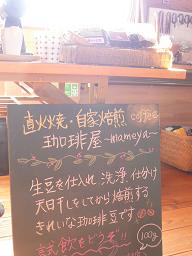 直火焼・自家焙煎 coffee
珈琲屋 ~mameya~
生豆を仕入れ、洗浄、仕分け
天日干しをしてから焙煎する
きれいな珈琲豆です
試飲をどうぞ!!
100g